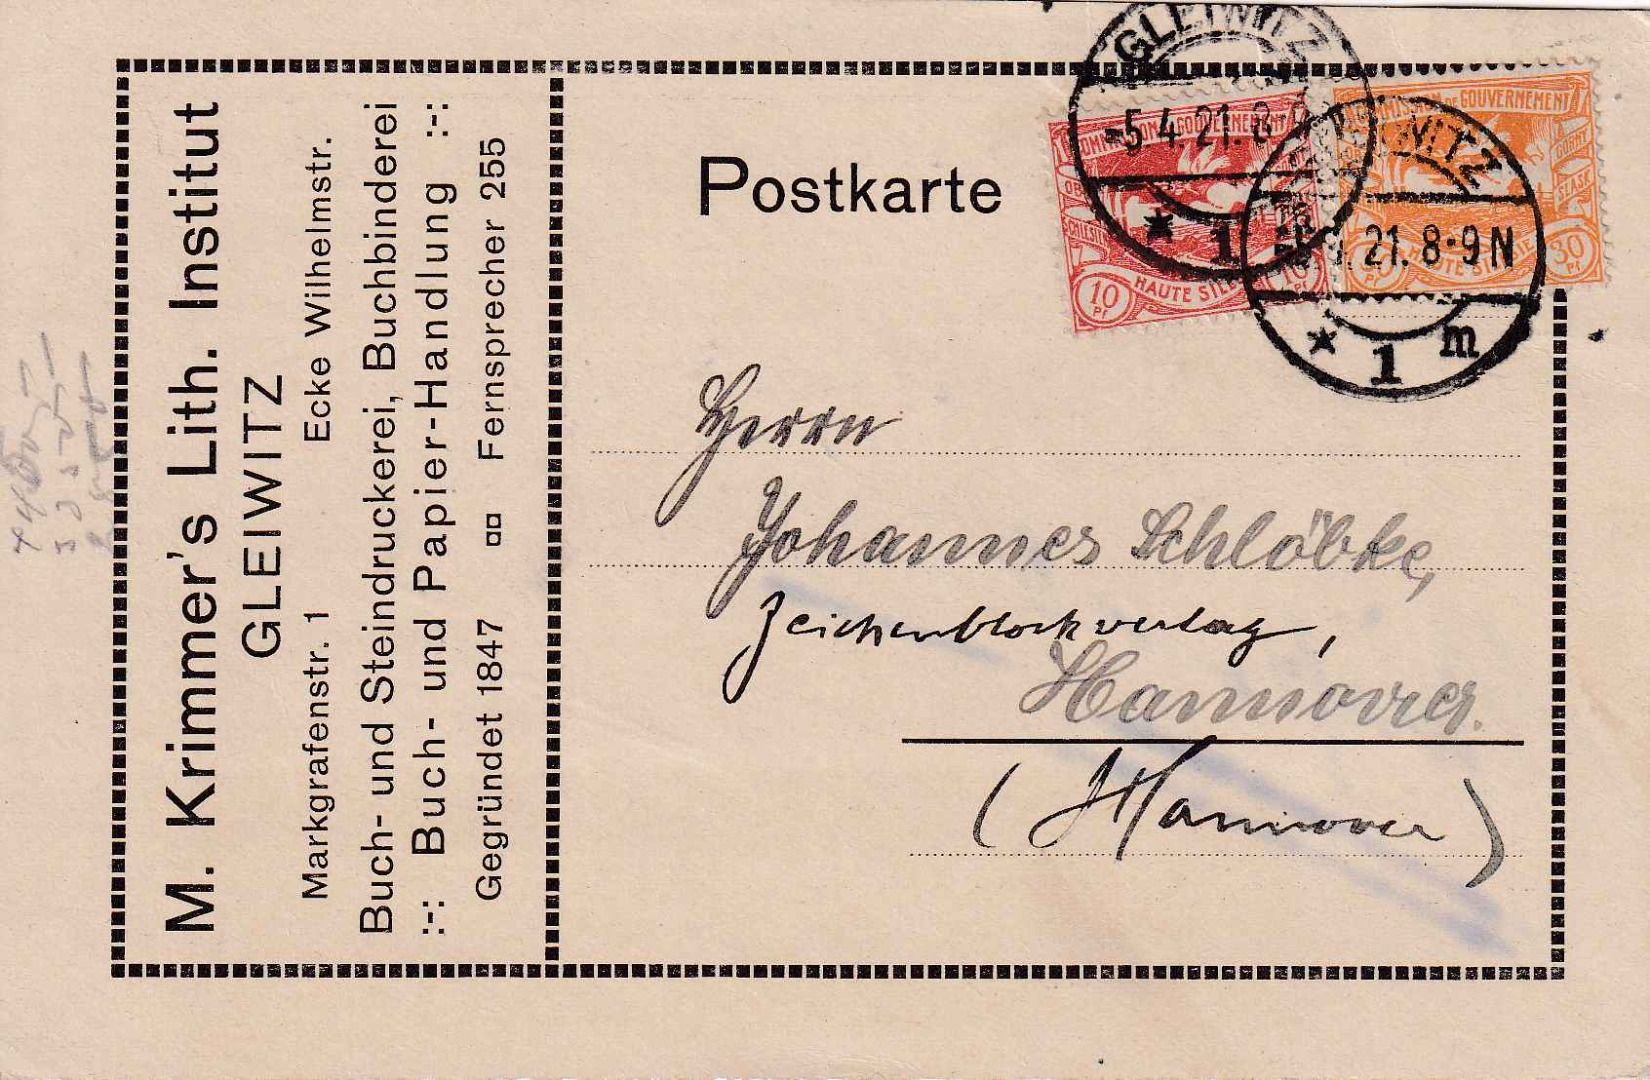 M. Krimmer's Lith. Institut
GLEIWITZ
Markgrafenstr. 1 Ecke Wilhelmstr.
Buch- und Steindruckerei, Buchbinderei
:-: Buch- und Papier-Handlung :-:
Gegründet 1847 □□ Fernsprecher 255
Postkarte
GLEIWITZ
-5.4.21.8-9
* 1
COMMISSION DE GOUVERNEMENT
10 Pf
HAUTE SILÉSIE
GLEIWITZ
21.8-9N
* 1 m
COMMISSION DE GOUVERNEMENT
GÓRNY ŚLĄSK
HAUTE SILÉSIE
30 Pf
Herrn
Johannes Schlöbke,
Zeichenblockverlag,
Hannover.
(Hannover)